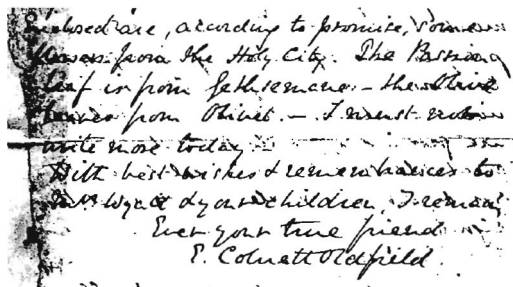 Enclosed are, according to promise, some
flowers from the Holy City. The Passion
leaf is from Gethsemane - the Olive
leaves from Olivet. - I must not
write more today
With best wishes & remembrances to
Mrs Wyatt & your children, I remain
Ever your true friend
E. Colnett Oldfield.